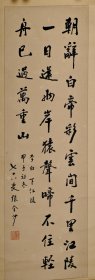 朝辭白帝彩雲間千里江陵
一日還兩岸猿聲啼不住輕
舟已過萬重山
李白下江陵
甲子初冬
七六叟張